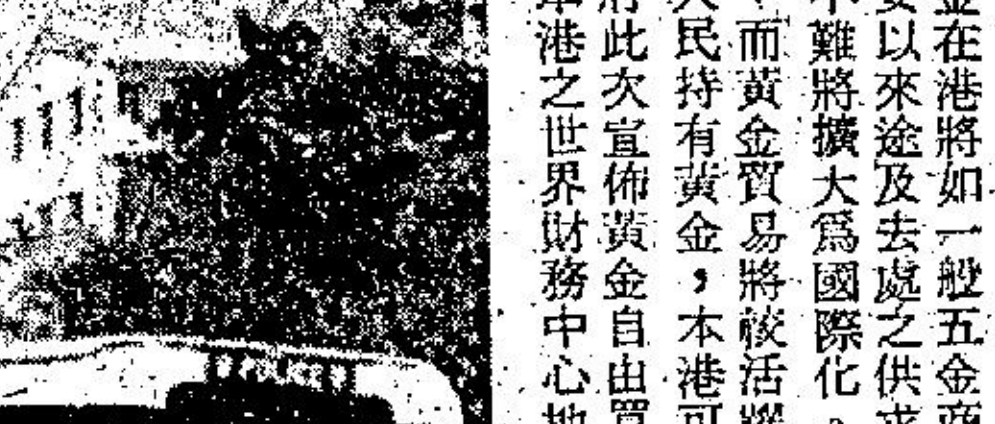 金在港將如一般五金商
以來途及去處之供求
不難將擴大爲國際化。
，而黃金貿易將較活躍
人民持有黃金，本港可
此次宣佈黃金自由買
本港之世界財務中心地